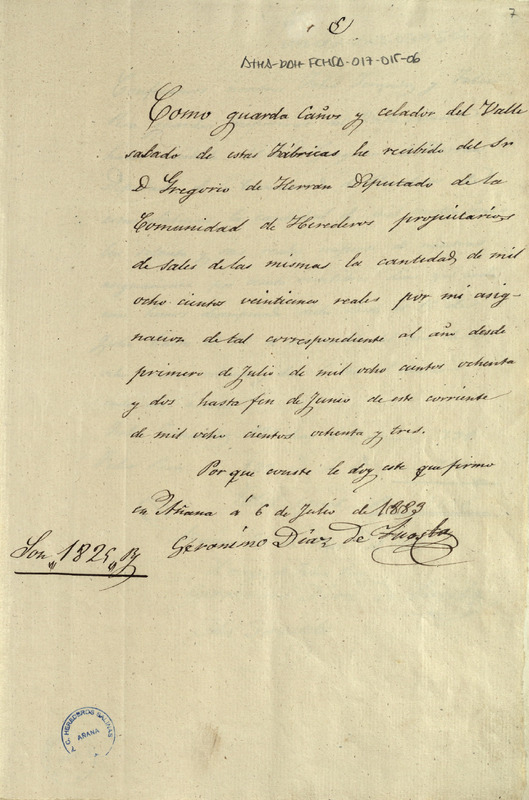 7
6
ATHA-DAH-FCHSA-017-015-06
Como guarda Caños y celador del Valle
salado de estas Fábricas he recibido del Sr
D Gregorio de Herran Diputado de la
Comunidad de Herederos propietarios
de sales de las mismas la cantidad, de mil
ocho cientos veinticinco reales por mi asig-
nacion de tal correspondiente al año desde
primero de Julio de mil ocho cientos ochenta
y dos hasta fin de Junio de este corriente
de mil ocho cientos ochenta y tres.
Por que conste le doy este que firmo
en Añana á 6 de Julio de 1883
Geronimo Díaz de
Son 1825 Rs
C. HEREDEROS SALINAS
AÑANA